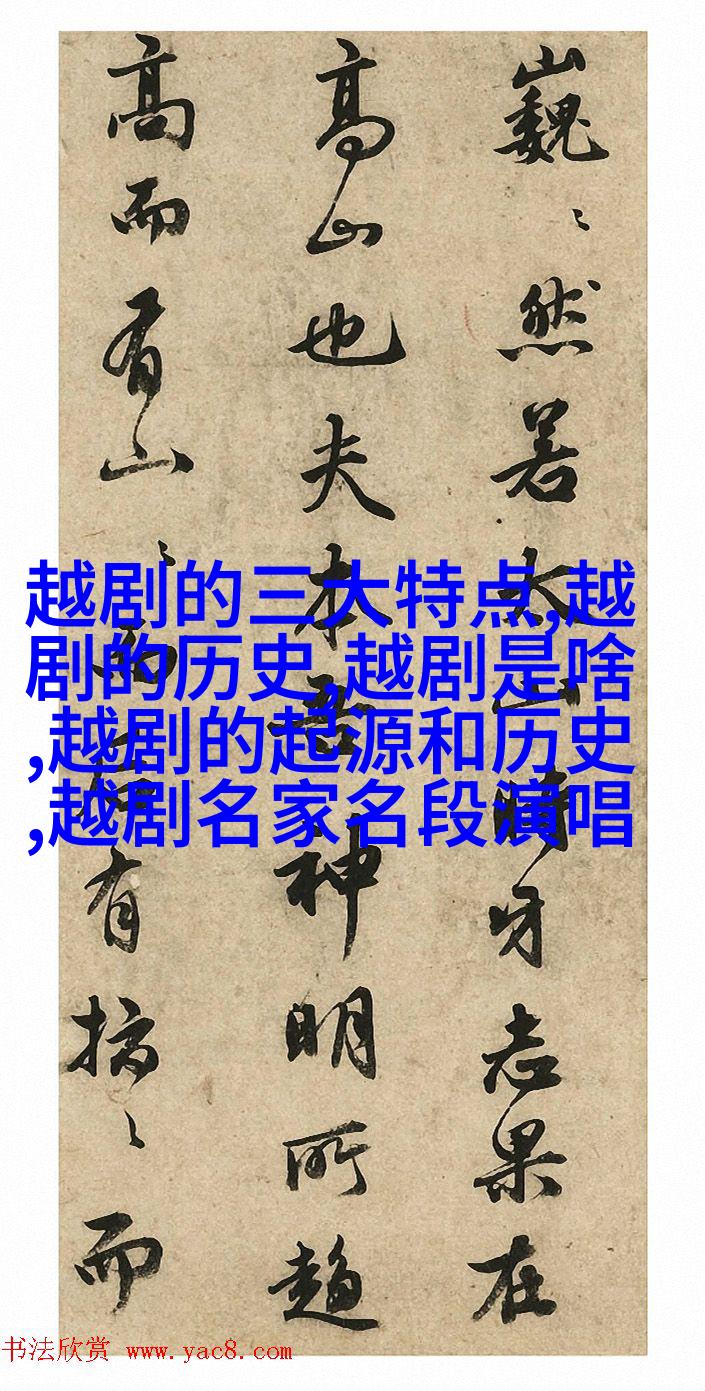 巍〻然若太山時牙志果在
高山也夫本吾神明所趨
高而有山〻而後有
而
越剧的三大特点,越
剧的历史,越剧是啥
,越剧的起源和历史
,越剧名家名段演唱
书法欣赏 www.yac8.com